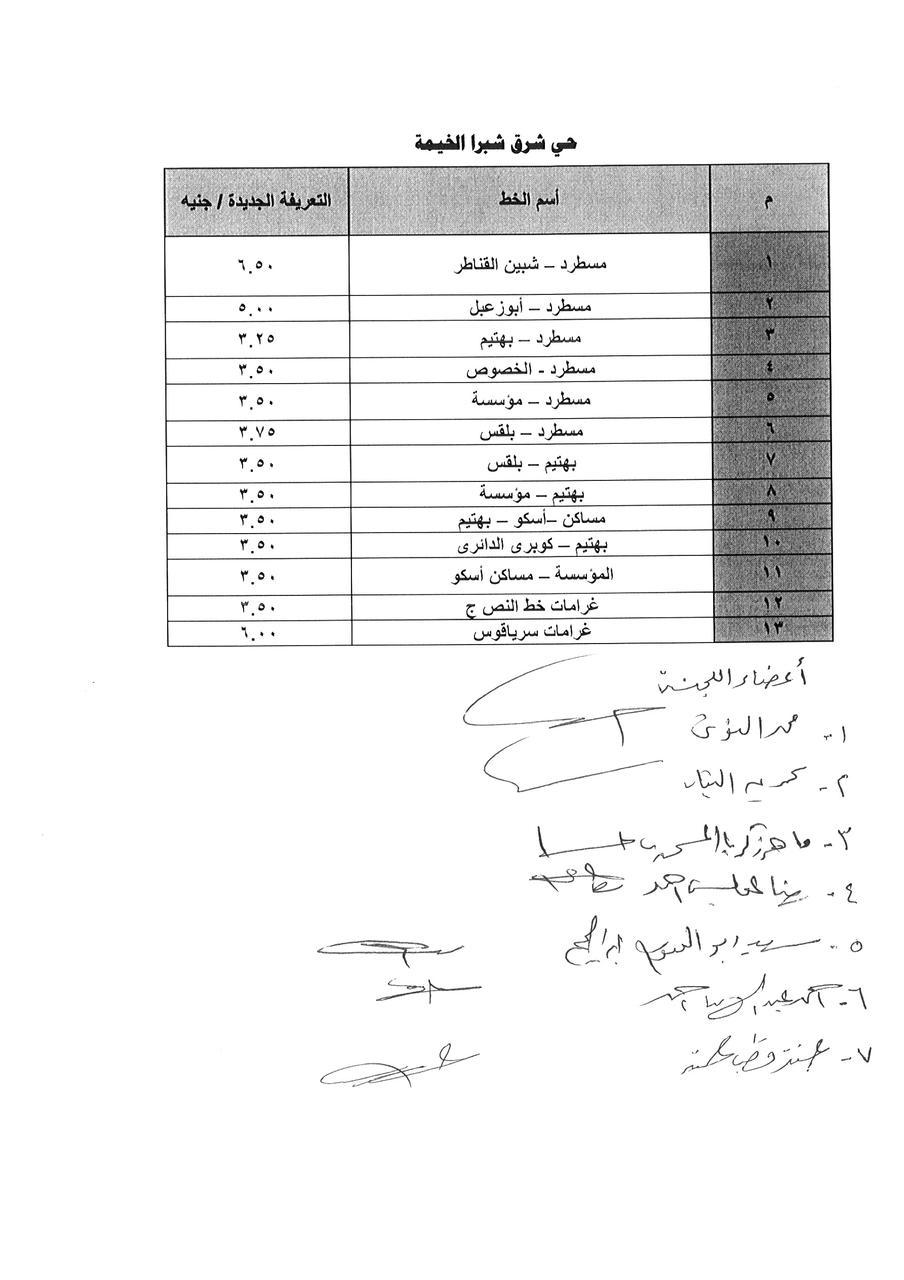 حي شرق شبرا الخيمة
م أسم الخط التعريفة الجديدة / جنيه
١ مسطرد – شبين القناطر ٦.٥٠
٢ مسطرد – أبوزعبل ٥.٠٠
٣ مسطرد – بهتيم ٣.٢٥
٤ مسطرد - الخصوص ٣.٥٠
٥ مسطرد – مؤسسة ٣.٥٠
٦ مسطرد – بلقس ٣.٧٥
٧ بهتيم – بلقس ٣.٥٠
٨ بهتيم – مؤسسة ٣.٥٠
٩ مساكن –أسكو – بهتيم ٣.٥٠
١٠ بهتيم – كوبرى الدائرى ٣.٥٠
١١ المؤسسة – مساكن أسكو ٣.٥٠
١٢ غرامات خط النص ج ٣.٥٠
١٣ غرامات سرياقوس ٦.٠٠
أعضاء اللجنة
١-
٢-
٣- ماهر زكريا
٤- احمد
٥- سيد ابو
٦- احمد عبد احمد
٧-